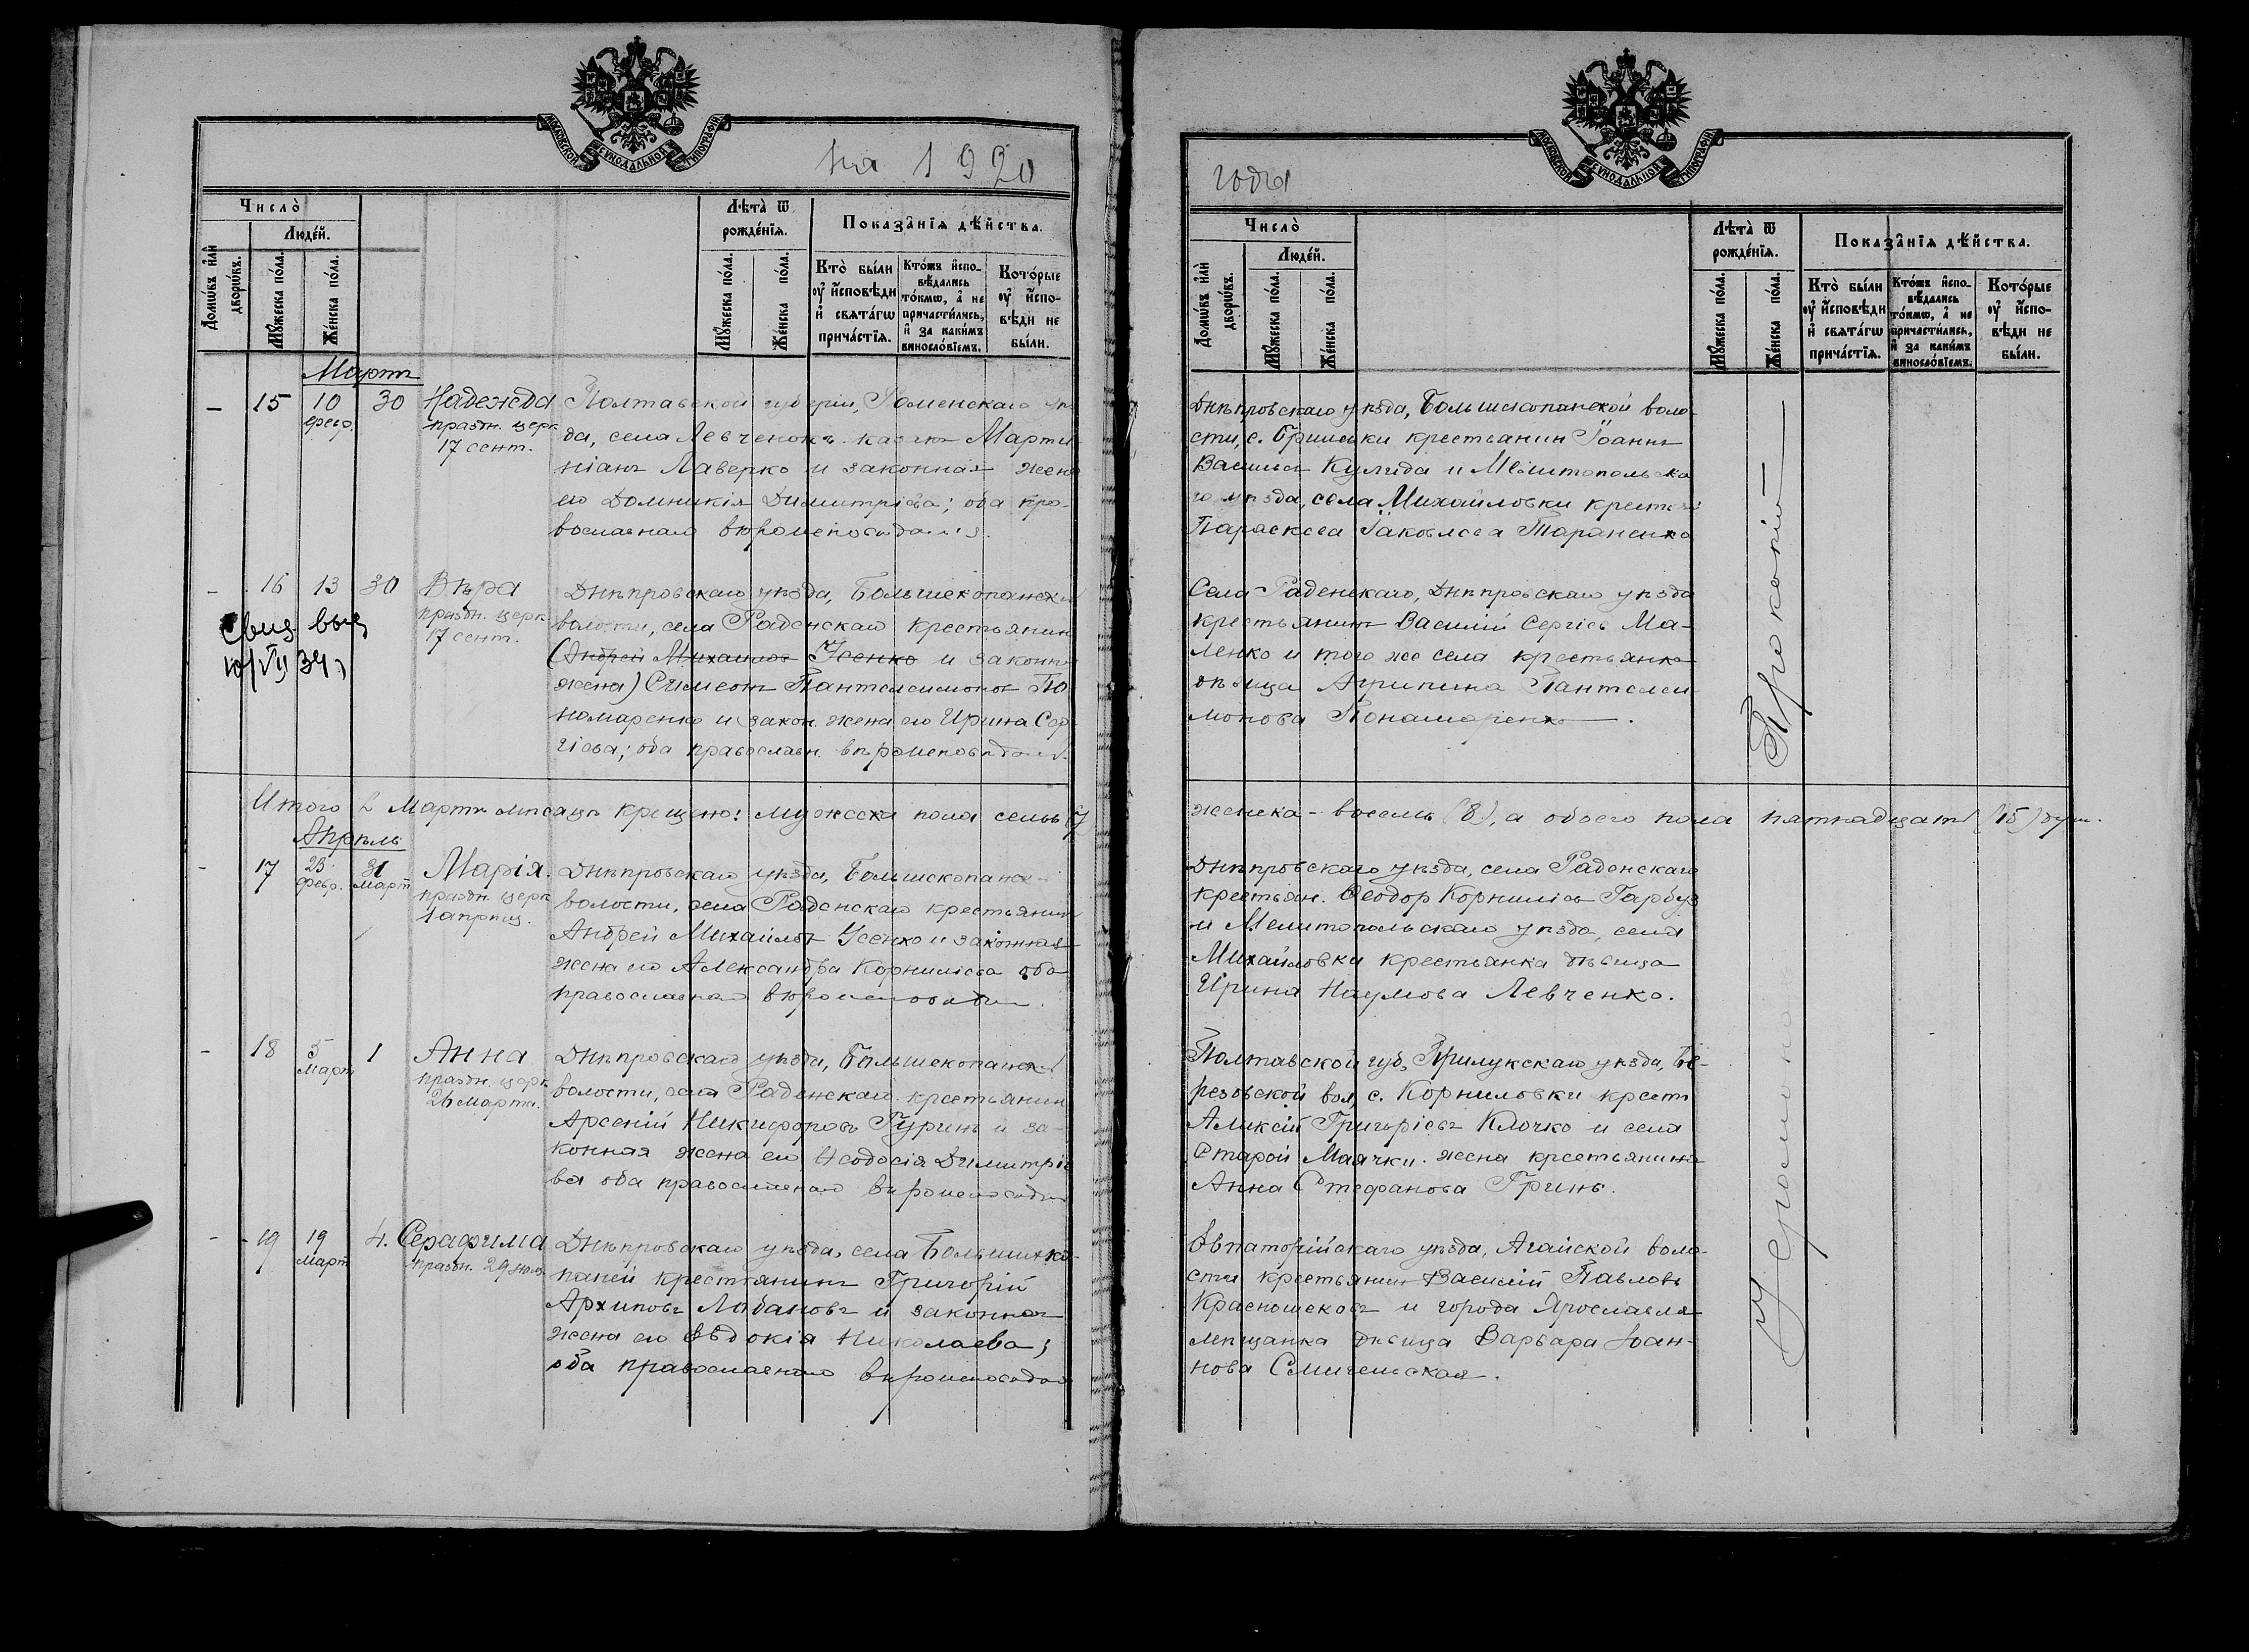 МОСКОВСКОЙ СѴНОДАЛЬНОЙ ТИПОГРАФІИ
на 1920
Число̀
Люде́й.
Домѡ́въ и҆лѝ дворѡ́въ.
Мꙋ́жеска по́ла.
Же́нска по́ла.
Лѣ́та ѿ рожде́нїѧ.
Мꙋ́жеска по́ла.
Же́нска по́ла.
Показа̂нїѧ дѣ́йства.
Кто̀ бы́ли оу҆ и҆́сповѣди и҆ свѧта́гѡ прича́стїѧ.
Кто́жъ и҆спо-
вѣ́дались
то́кмѡ, а҆ не
причасти́лись,
и҆ за каки́мъ
винослові́емъ.
Кото́рые
оу҆ и҆спо-
вѣди не
бы́ли.
Мартъ
– 15 10 февр. 30 Надежда
праздн. церк.
17 сент.
Полтавской губерніи, Роменскаго уѣз
да, села Левченокъ казакъ Марти
ніанъ Лаверко и законная жена
его Домникія Димитріева; оба пра-
вославнаго вѣроисповѣданія.
– 16 13 30 Вѣра
праздн. церк.
17 сент.
Свид. выд.
10/VII 34 г
Днѣпровскаго уѣзда, Большекопанской
волости, села Раденскаго крестьянинъ
(Андрей Михаиловъ Усенко и законная
жена) Симеонъ Пантелеимоновъ По
номаренко и закон. жена его Ирина Сер-
гіева; оба православн. вѣроисповѣданія.
Итого въ Мартѣ мѣсяцѣ крещено: мужеска пола семь (7
Апрѣль
– 17 25 февр. 31 март Марія.
праздн. церк.
1 апрѣля.
Днѣпровскаго уѣзда, Большекопанской
волости, села Раденскаго крестьянинъ
Андрей Михайловъ Усенко и законная
жена его Александра Корниліева оба
православнаго вѣроисповѣдан.
– 18 5 Март 1 Анна
праздн. церк.
26 Марта.
Днѣпровскаго уѣзда, Большекопанской
волости, села Раденскаго крестьянинъ
Арсеній Никифоровъ Гуринъ и за-
конная жена его Ѳеодосія Димитріе
ва оба православнаго вѣроисповѣдан
– 19 19 Март 4. Серафима
праздн. 29 іюля.
Днѣпровскаго уѣзда, села Большихъ Ко-
паней крестьянинъ Григорій
Архиповъ Лобановъ и законная
жена его Евдокія Николаева;
оба православнаго вѣроисповѣдан
МОСКОВСКОЙ СѴНОДАЛЬНОЙ ТИПОГРАФІИ
годы
Число̀
Люде́й.
Домѡ́въ и҆лѝ дворѡ́въ.
Мꙋ́жеска по́ла.
Же́нска по́ла.
Лѣ́та ѿ рожде́нїѧ.
Мꙋ́жеска по́ла.
Же́нска по́ла.
Показа̂нїѧ дѣ́йства.
Кто̀ бы́ли оу҆ и҆́сповѣди и҆ свѧта́гѡ прича́стїѧ.
Кто́жъ и҆спо-
вѣ́дались
то́кмѡ, а҆ не
причасти́лись,
и҆ за каки́мъ
винослові́емъ.
Кото́рые
оу҆ и҆спо-
вѣди не
бы́ли.
Днѣпровскаго уѣзда, Большекопанской воло-
сти, с. Бриловки крестьянин Іоаннъ
Василіевъ Кулида и Мелитопольска
го уѣзда, села Михайловки крестья
Параскева Іаковлева Тараненко
Села Раденскаго, Днѣпровскаго уѣзда
крестьянинъ Василій Сергіев Ма-
ленко и того же села крестьянка
дѣвица Агрипина Пантелеи
монова Понамаренко.
женска – восемь (8), а обоего пола пятнадцать (15) душ.
Днѣпровскаго уѣзда, села Раденскаго
крестьян. Ѳеодор Корниліев Гарбуз
и Мелитопольскаго уѣзда, села
Михайловки крестьянка дѣвица
Ирина Наумова Левченко.
Полтавской губ., Прилукскаго уѣзда, Бе-
резовской вол, с. Корниловки крест
Алексій Григоріевъ Клочко и села
Старой Маячки жена крестьянина
Анна Стефанова Гринь.
Евпаторійскаго уѣзда, Агайской воло-
сти крестьянин Василій Павловъ
Краснощековъ и города Ярославля
мѣщанка дѣвица Варвара Іоан-
нова Смигельская.